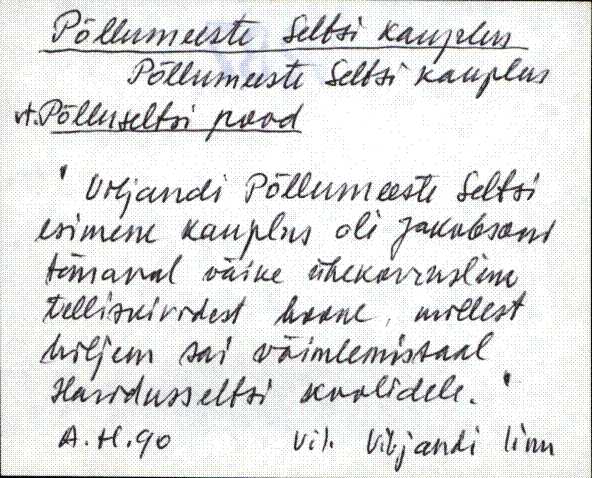 Põllumeeste Seltsi kauplus
Põllumeeste Seltsi kauplus
vt. Põlluseltsi pood
" Viljandi Põllumeeste Seltsi
esimene kauplus oli Jakobsoni
tänaval väike ühekorrusline
telliskividest hoone, millest
hiljem sai võimlemissaal
Haridusseltsi koolidele. "
A.H.90 Vil. Viljandi linn